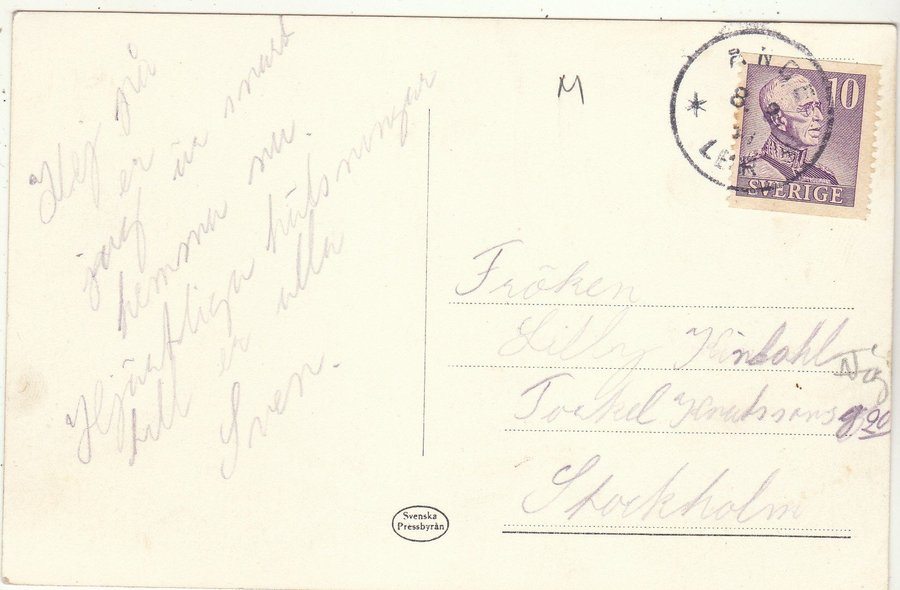 Hej på
jag er ú snart
hemma nu.
Hjärtliga hälsningar
till er alla
Sven.
M
10
SVERIGE
Fröken
Lilly
Torkel Knutssons g. 20
Stockholm
Svenska
Pressbyrån